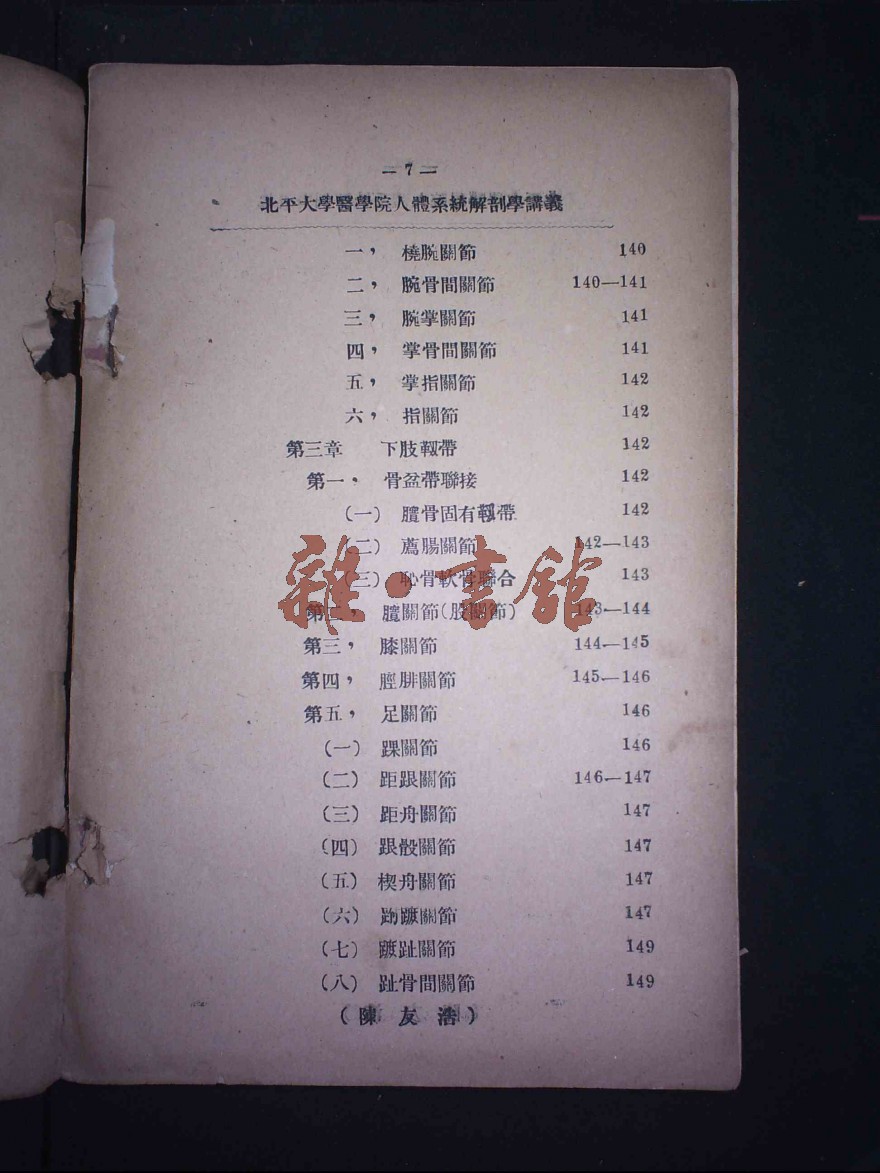 — 7 —
北平大學醫學院人體系統解剖學講義
一， 橈腕關節 140
二， 腕骨間關節 140—141
三， 腕掌關節 141
四， 掌骨間關節 141
五， 掌指關節 142
六， 指關節 142
第三章 下肢靱帶 142
第一， 骨盆帶聯接 142
(一) 臗骨固有靱帶 142
(二) 薦腸關節 142—143
(三) 恥骨軟骨聯合 143
第二， 臗關節(股關節) 143—144
第三， 膝關節 144—145
第四， 脛腓關節 145—146
第五， 足關節 146
(一) 踝關節 146
(二) 距跟關節 146—147
(三) 距舟關節 147
(四) 跟骰關節 147
(五) 楔舟關節 147
(六) 跗蹠關節 147
(七) 蹠趾關節 149
(八) 趾骨間關節 149
(陳友浩)
雜·書館